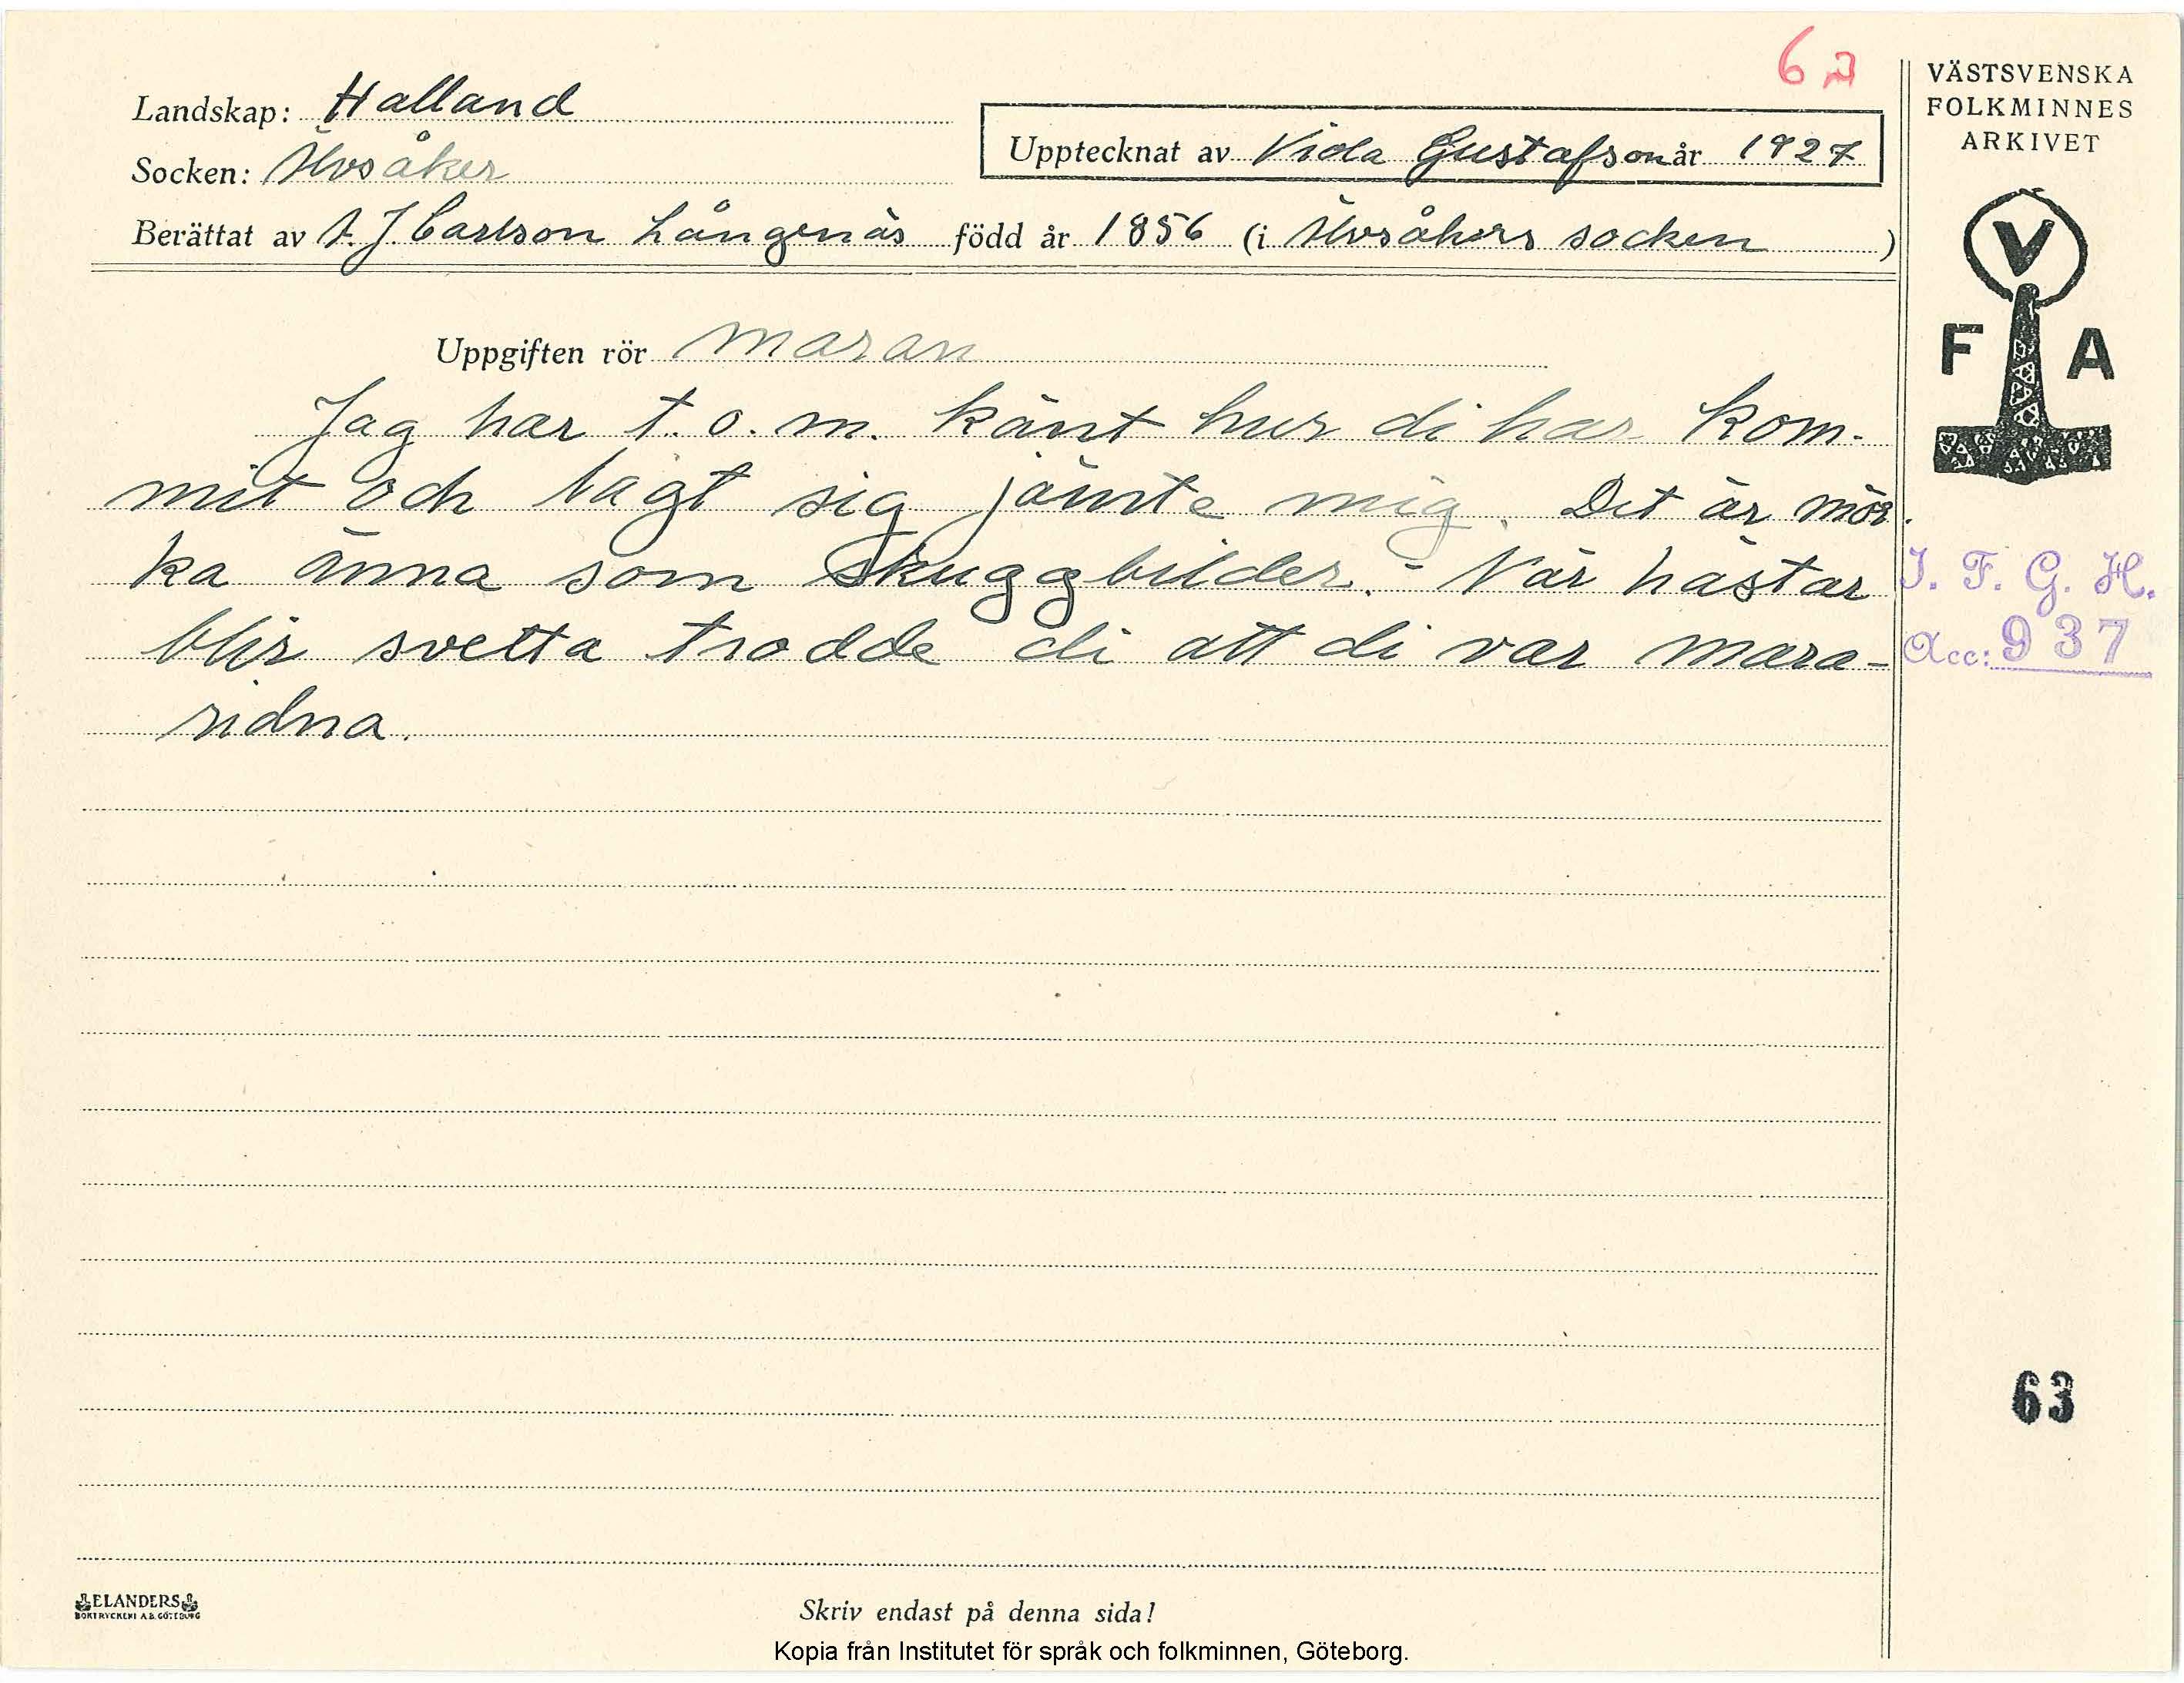 6
Landskap: Halland
VÄSTSVENSKA
FOLKMINNES
ARKIVET
Upptecknat av Viola Gustafson år 1927
Socken: Älvsåker
Berättat av A. J. Carlson Långenäs född år 1856 (i Älvsåkers socken)
V
F A
Uppgiften rör maran
Jag har t. o. m. känt hur di har kom-
mit och lagt sig jämte mig. Det är mör-
ka änna som skuggbilder. - När hästar
blir svetta trodde di att di var mara-
ridna.
I. F. G. H.
Acc: 937
63
ELANDERS
BOKTRYCKERI A.B. GÖTEBORG
Skriv endast på denna sida!
Kopia från Institutet för språk och folkminnen, Göteborg.